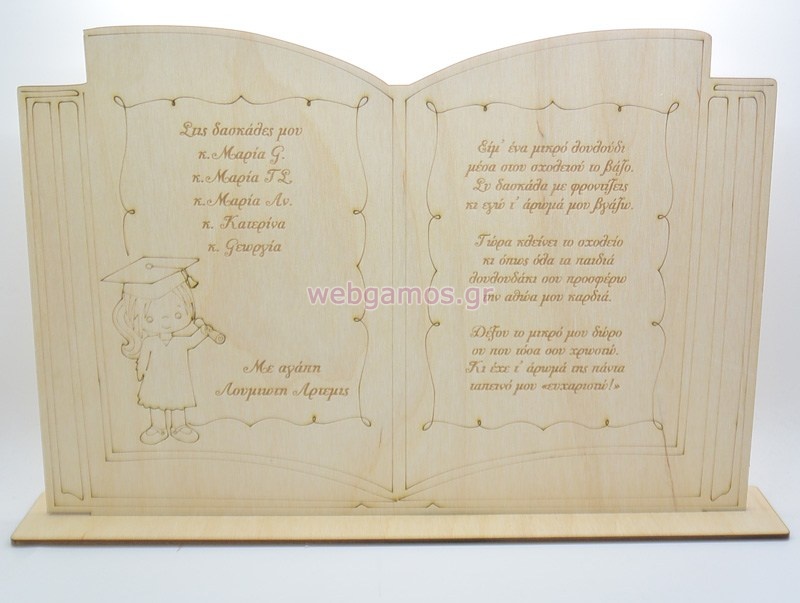 Στις δασκάλες μου
κ.Μαρία G.
κ.Μαρία ΤΣ
κ.Μαρία Αν.
κ. Κατερίνα
κ. Gεωργία
Με αγάπη
Λουμιωτη Αρτεμις
Είμ' ένα μικρό λουλούδι
μέσα στου σχολειού το βάζο.
Συ δασκάλα με φροντίζεις
κι εγώ τ' άρωμά μου βγάζω.
Τώρα κλείνει το σχολείο
κι όπως όλα τα παιδιά
λουλουδάκι σου προσφέρω
την αθώα μου καρδιά.
Δέξου το μικρό μου δώρο
συ που τόσα σου χρωστώ.
Κι έχε τ' άρωμά της πάντα
ταπεινό μου «ευχαριστώ!»
webgamos.gr